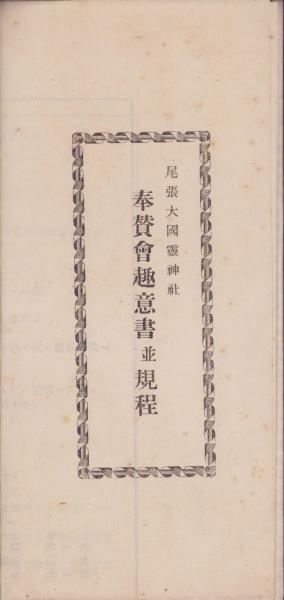 尾張大國靈神社
奉贊會趣意書並規程